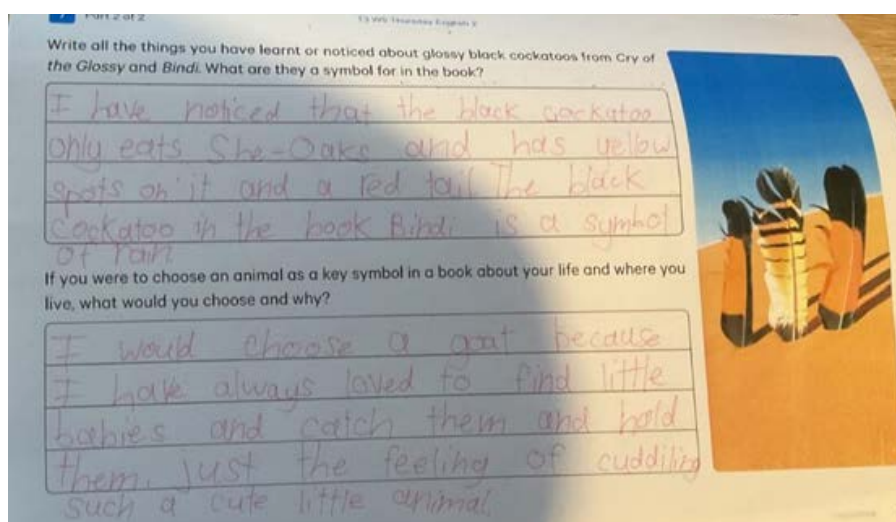 Part 2 of 2
Write all the things you have learnt or noticed about glossy black cockatoos from Cry of
the Glossy and Bindi. What are they a symbol for in the book?
I have noticed that the black cockatoo
only eats She-Oaks and has yellow
spots on it and a red tail The black
Cockatoo in the book Bindi is a symbol
of rain
If you were to choose an animal as a key symbol in a book about your life and where you
live, what would you choose and why?
I would choose a goat because
I have always loved to find little
babies and catch them and hold
them. just the feeling of cuddiling
such a cute little animal